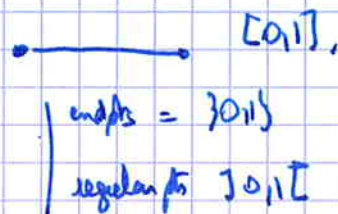 [0,1],
endpts = {0,1}
regular pts ]0,1[